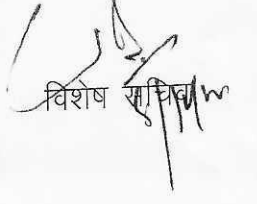 विशेष सचिव